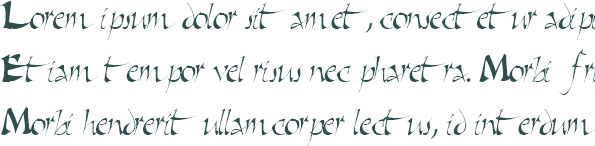 Lorem ipsum dolor sit amet, consectetur adip
Etiam tempor vel risus nec pharetra. Morbi fri
Morbi hendrerit ullamcorper lectus, id interdum